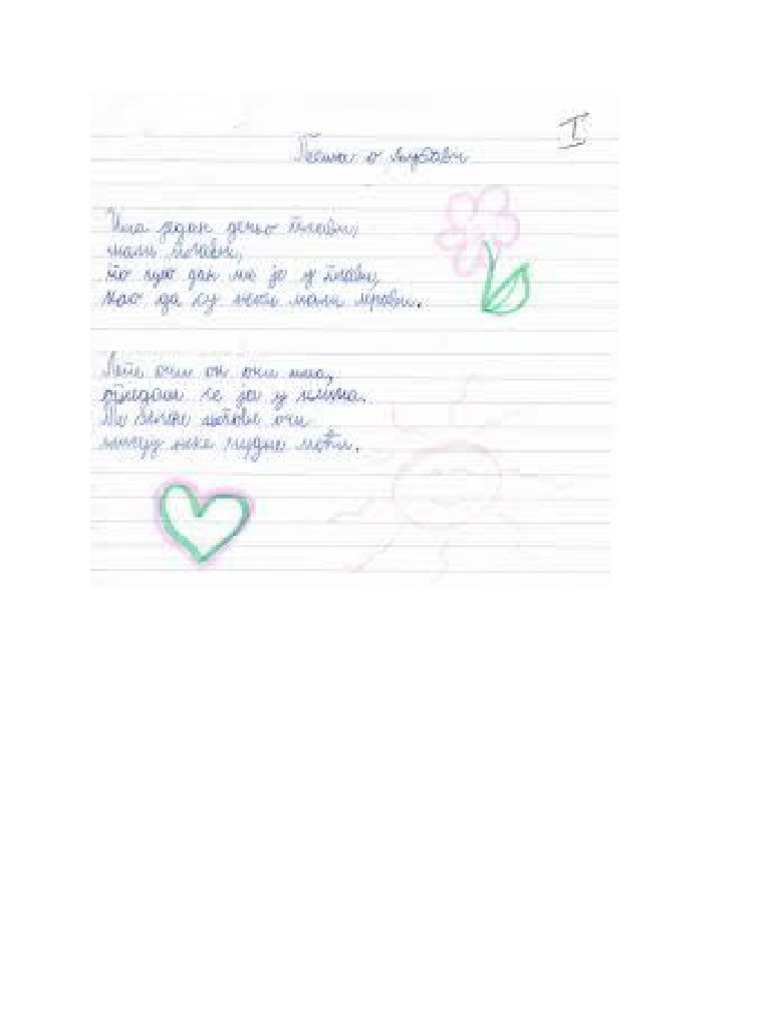 I
Песма о љубави
Има један дечко плави,
мали плави,
по цео дан ми је у глави,
као да су неки мали мрави.
Лепе очи он има,
гледам се ја у њима.
Те његове очи
имају неке чудне моћи.